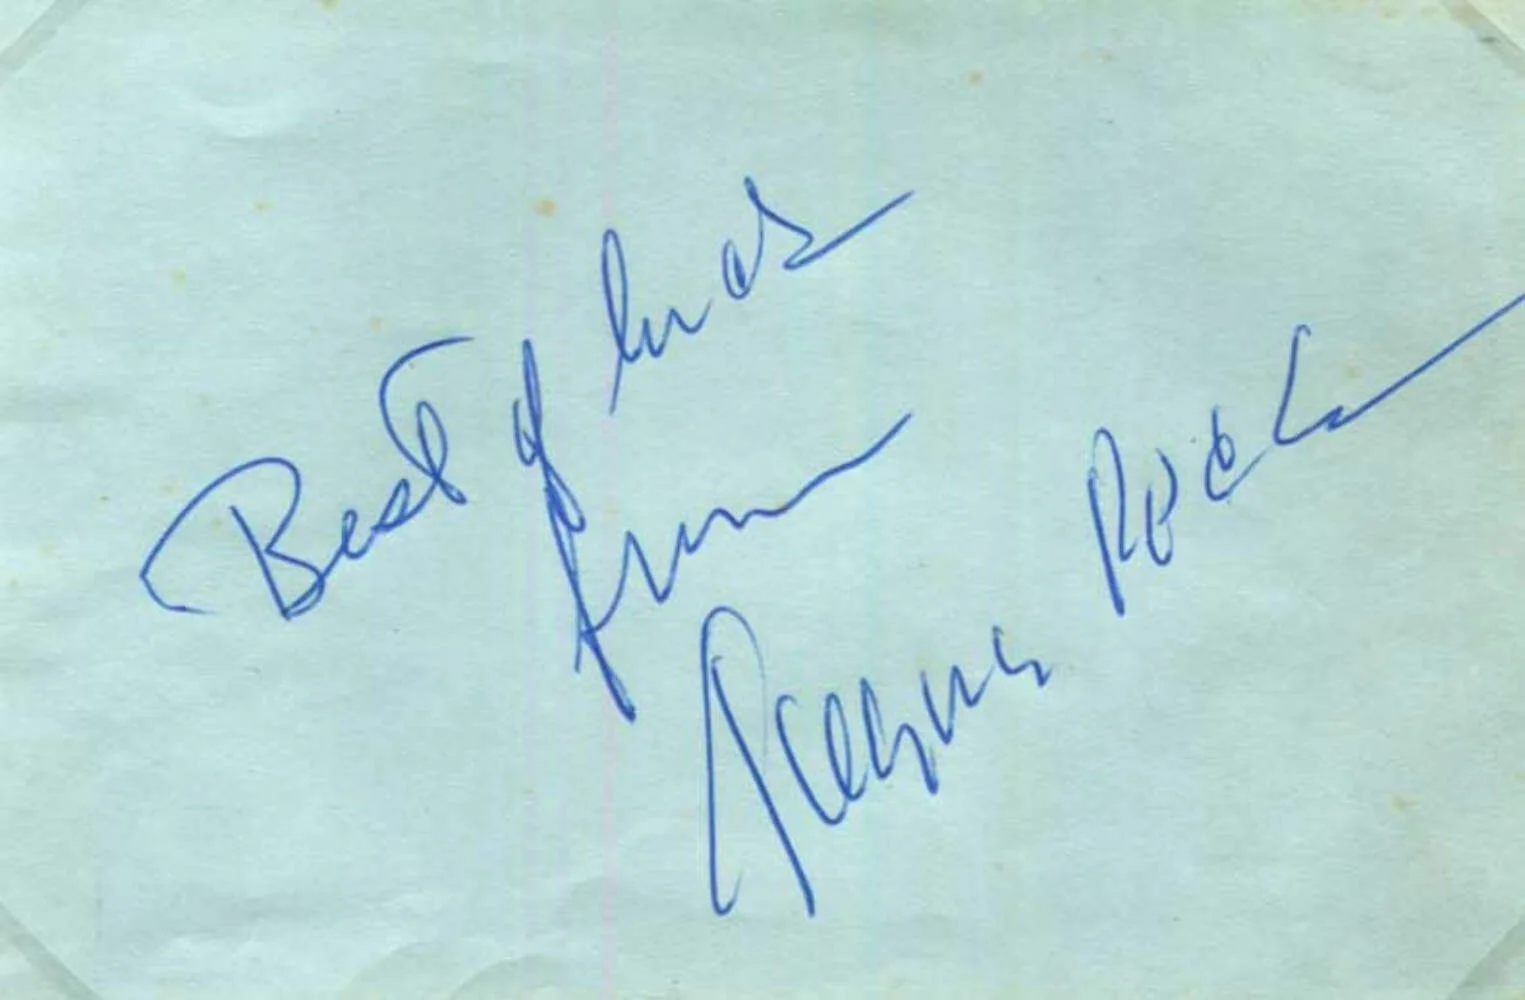 Best of luck
from
Rock